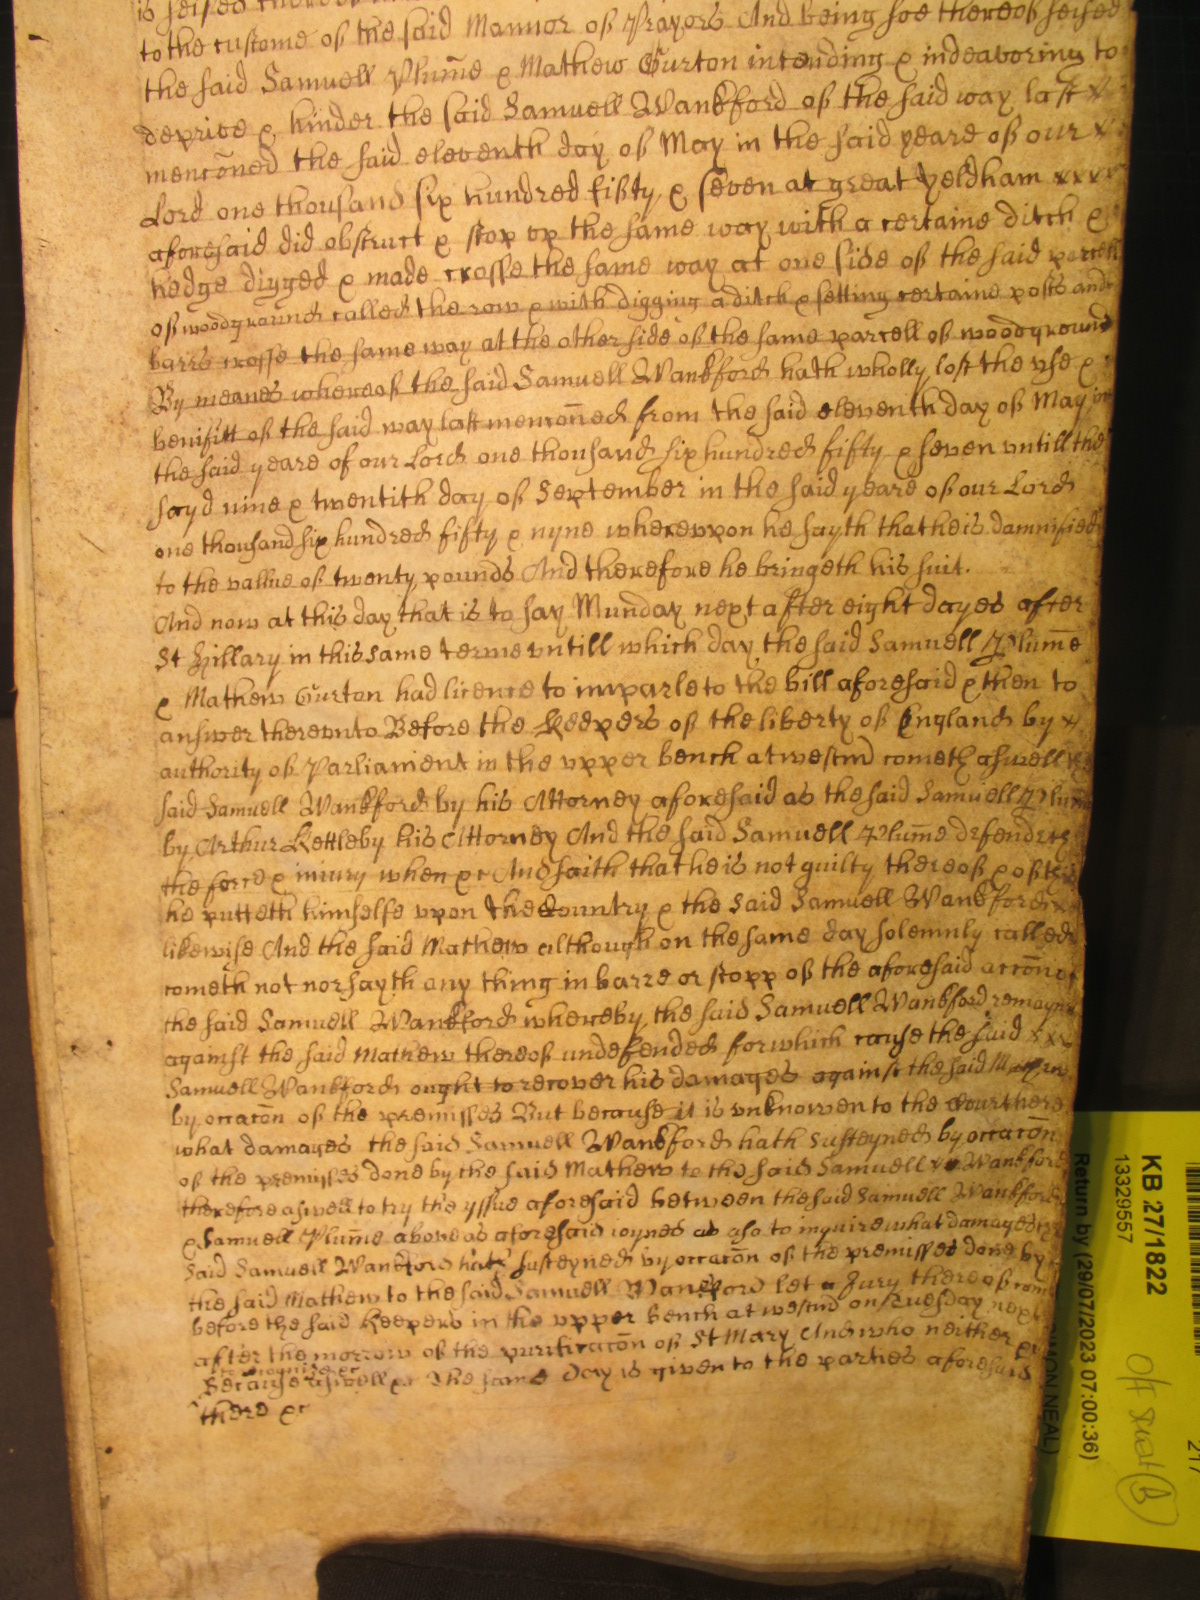 is seised thereof
to the custome of the said Mannor of Prayors And being soe thereof seised
the said Samuell Plum̄e & Mathew Gurton intending & indeavoring to
deprive & hinder the said Samuell Wankford of the said way last x
menc̄oned the said eleventh day of May in the said yeare of our x
Lord one thousand six hundred fifty & seven at great Yeldham xxxx
aforesaid did obstruct & stop vp the same way with a certaine ditch &
hedge digged & made crosse the same way at one side of the said parcell
of woodground called the row & with digging a ditch & setting certaine posts and
barrs crosse the same way at the other side of the same parcell of woodground
By meanes whereof the said Samuell Wankford hath wholly lost the vse &
benifitt of the said way last menc̄oned from the said eleventh day of May in
the said yeare of our Lord one thousand six hundred fifty & seven vntill the
sayd nine & twentith day of September in the said yeare of our Lord
one thousand six hundred fifty & nyne wherevpon he sayth that he is damnified
to the vallue of twenty pounds And therefore he bringeth his suit.
And now at this day that is to say Munday next after eight dayes after
St Hillary in this same terme vntill which day the said Samuell Plum̄e
& Mathew Gurton had licence to imparle to the bill aforesaid & then to
answer therevnto Before the Keepers of the liberty of England by x
authority of Parliament in the vpper bench at westm̄ cometh aswell the
said Samuell Wankford by his Attorney aforesaid as the said Samuell Plum̄e
by Arthur Kettleby his Attorney And the said Samuell Plum̄e defendeth
the force & iniury when &c And saith that he is not guilty thereof & of this
he putteth himselfe vpon the Country & the said Samuell Wankford x
likewise And the said Mathew although on the same day solemnly called
cometh not nor sayth any thing in barre or stopp of the aforesaid acc̄on of
the said Samuell Wankford whereby the said Samuell Wankford remaynes
against the said Mathew thereof undefended for which cause the said xxx
Samuell Wankford ought to recover his damages against the said Mathew
by occac̄on of the premisses But because it is vnknowen to the Court here
what damages the said Samuell Wankford hath susteyned by occac̄on
of the premisses done by the said Mathew to the said Samuell Wankford
therefore aswell to try the yssue aforesaid between the said Samuell Wankford
& Samuell Plum̄e above as aforesaid ioyned as also to inquire what damages the
said Samuell Wankford hath susteyned by occac̄on of the premisses done by
the said Mathew to the said Samuell Wankford let a Jury thereof come
before the said Keepers in the vpper bench at westm̄ on Tuesday next
after the morrow of the purificac̄on of St Mary And who neither &c
to recognize &c
Because aswell &c The same day is given to the parties aforesaid
there &c
KB 27/1822
13329557
Return by (29/07/2023 07:00:36)
SIMON NEAL)
217